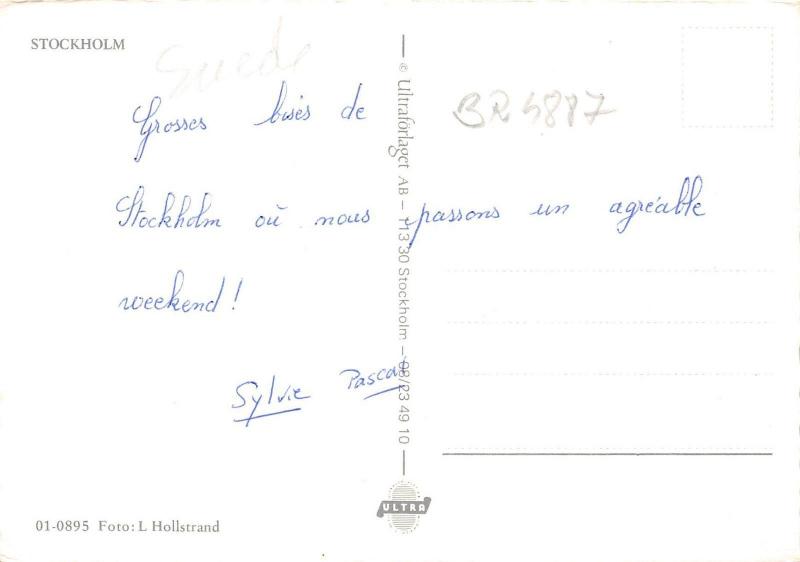 STOCKHOLM
Suede
BR4887
Grosses bisés de
Stockholm où nous passons un agréable
weekend!
Sylvie Pascal
© Ultraförlaget AB – 113 30 Stockholm – 08/23 49 10
ULTRA
01-0895 Foto: L Hollstrand